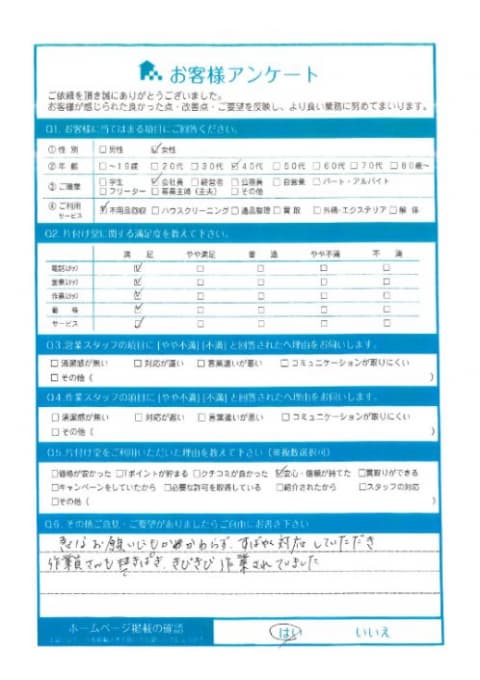 お客様アンケート
ご依頼を頂き誠にありがとうございました。
お客様が感じられた良かった点・改善点・ご要望を反映し、より良い業務に努めてまいります。
Q1. お客様に当てはまる項目にご回答ください。
①性 別 □男性 ☑女性
②年 齢 □～19歳 □20代 □30代 ☑40代 □50代 □60代 □70代 □80歳～
③ご職業 □学生 ☑会社員 □経営者 □公務員 □自営業 □パート・アルバイト
□フリーター □専業主婦（主夫） □その他
④ご利用サービス ☑不用品回収 □ハウスクリーニング □遺品整理 □買取 □外構・エクステリア □解体
Q2. 片付け堂に関する満足度を教えて下さい。
満 足 やや満足 普 通 やや不満 不 満
電話スタッフ ☑ □ □ □ □
営業スタッフ ☑ □ □ □ □
作業スタッフ ☑ □ □ □ □
価 格 ☑ □ □ □ □
サービス ☑ □ □ □ □
Q3. 営業スタッフの項目に [やや不満] [不満] と回答された方へ理由をお伺いします。
□清潔感が無い □対応が遅い □言葉遣いが悪い □コミュニケーションが取りにくい
□その他（ ）
Q4. 作業スタッフの項目に [やや不満] [不満] と回答された方へ理由をお伺いします。
□清潔感が無い □対応が遅い □言葉遣いが悪い □コミュニケーションが取りにくい
□その他（ ）
Q5. 片付け堂をご利用いただいた理由を教えて下さい（※複数選択可）
□価格が安かった □Tポイントが貯まる □クチコミが良かった ☑安心・信頼が持てた □買取りができる
□キャンペーンをしていたから □必要な許可を取得している □紹介されたから □スタッフの対応
□その他（ ）
Q6. その他ご意見・ご要望がありましたらご自由にお書き下さい
急なお願いにもかかわらず、すばやく対応していただき
作業員さんもてきぱき、きびきび作業されていました
ホームページ掲載の確認 はい いいえ